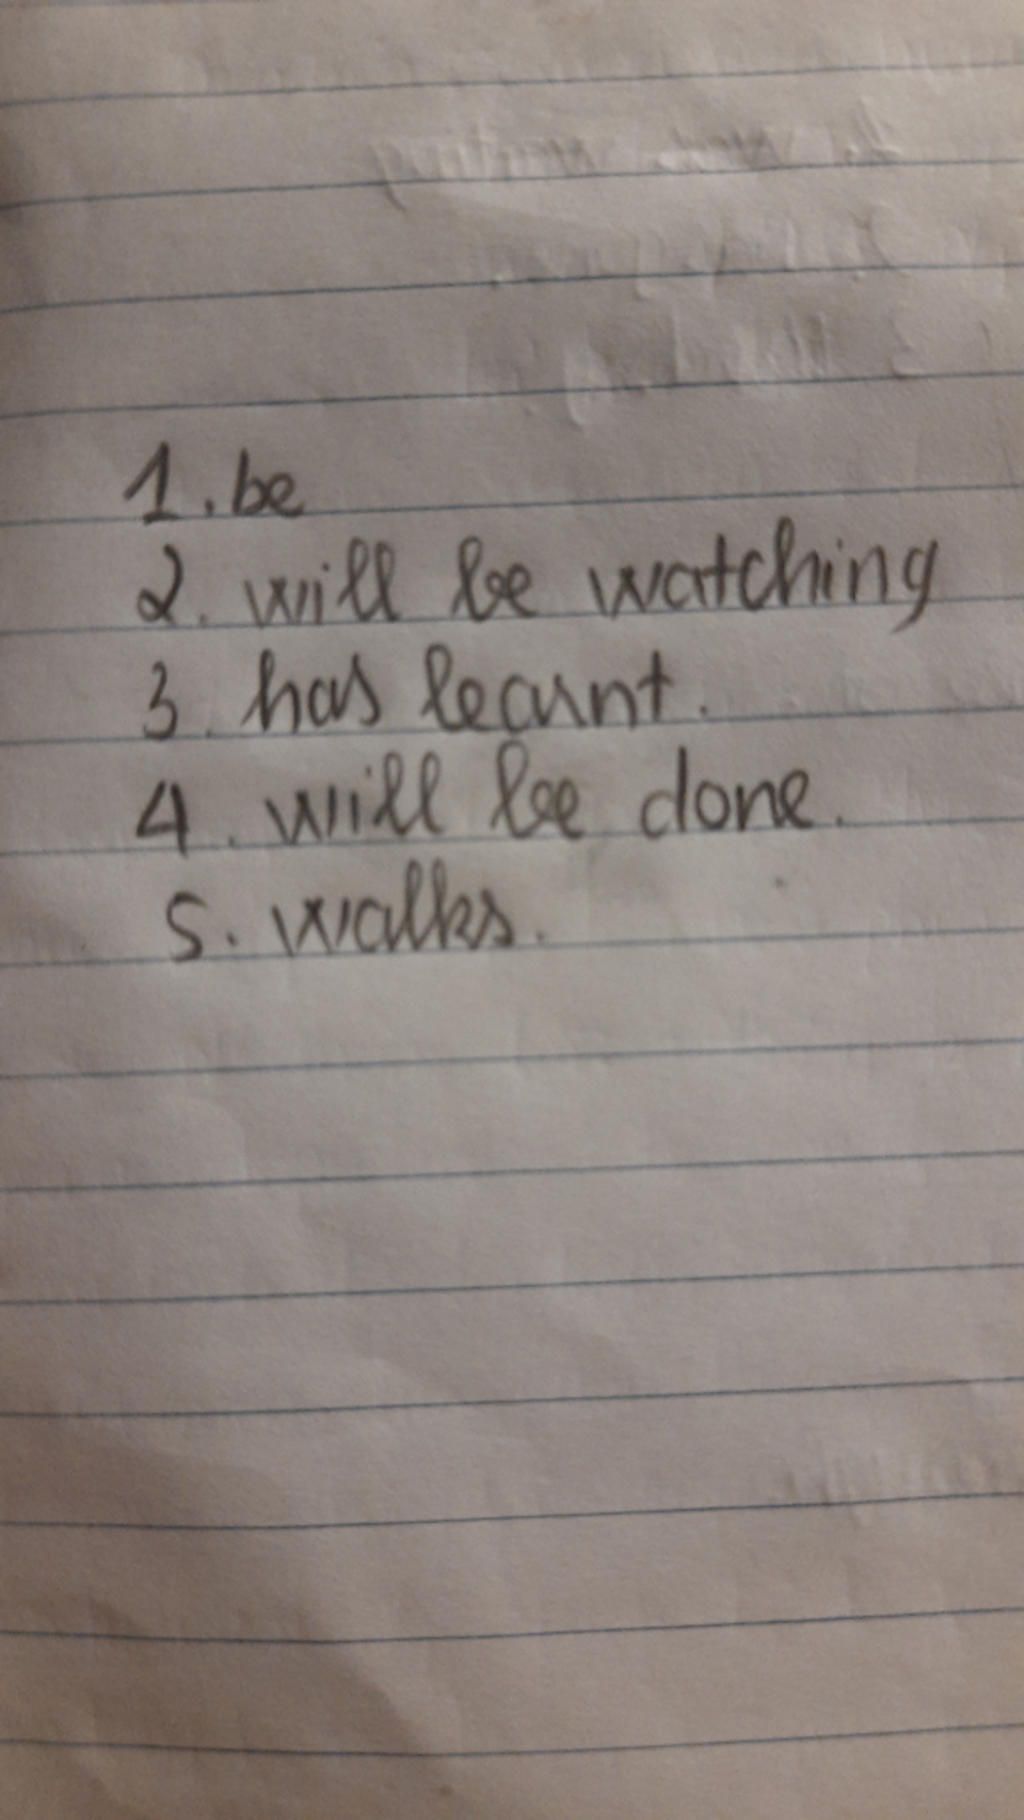 1. be
2. will be watching
3. has learnt.
4. will be done.
5. walks.